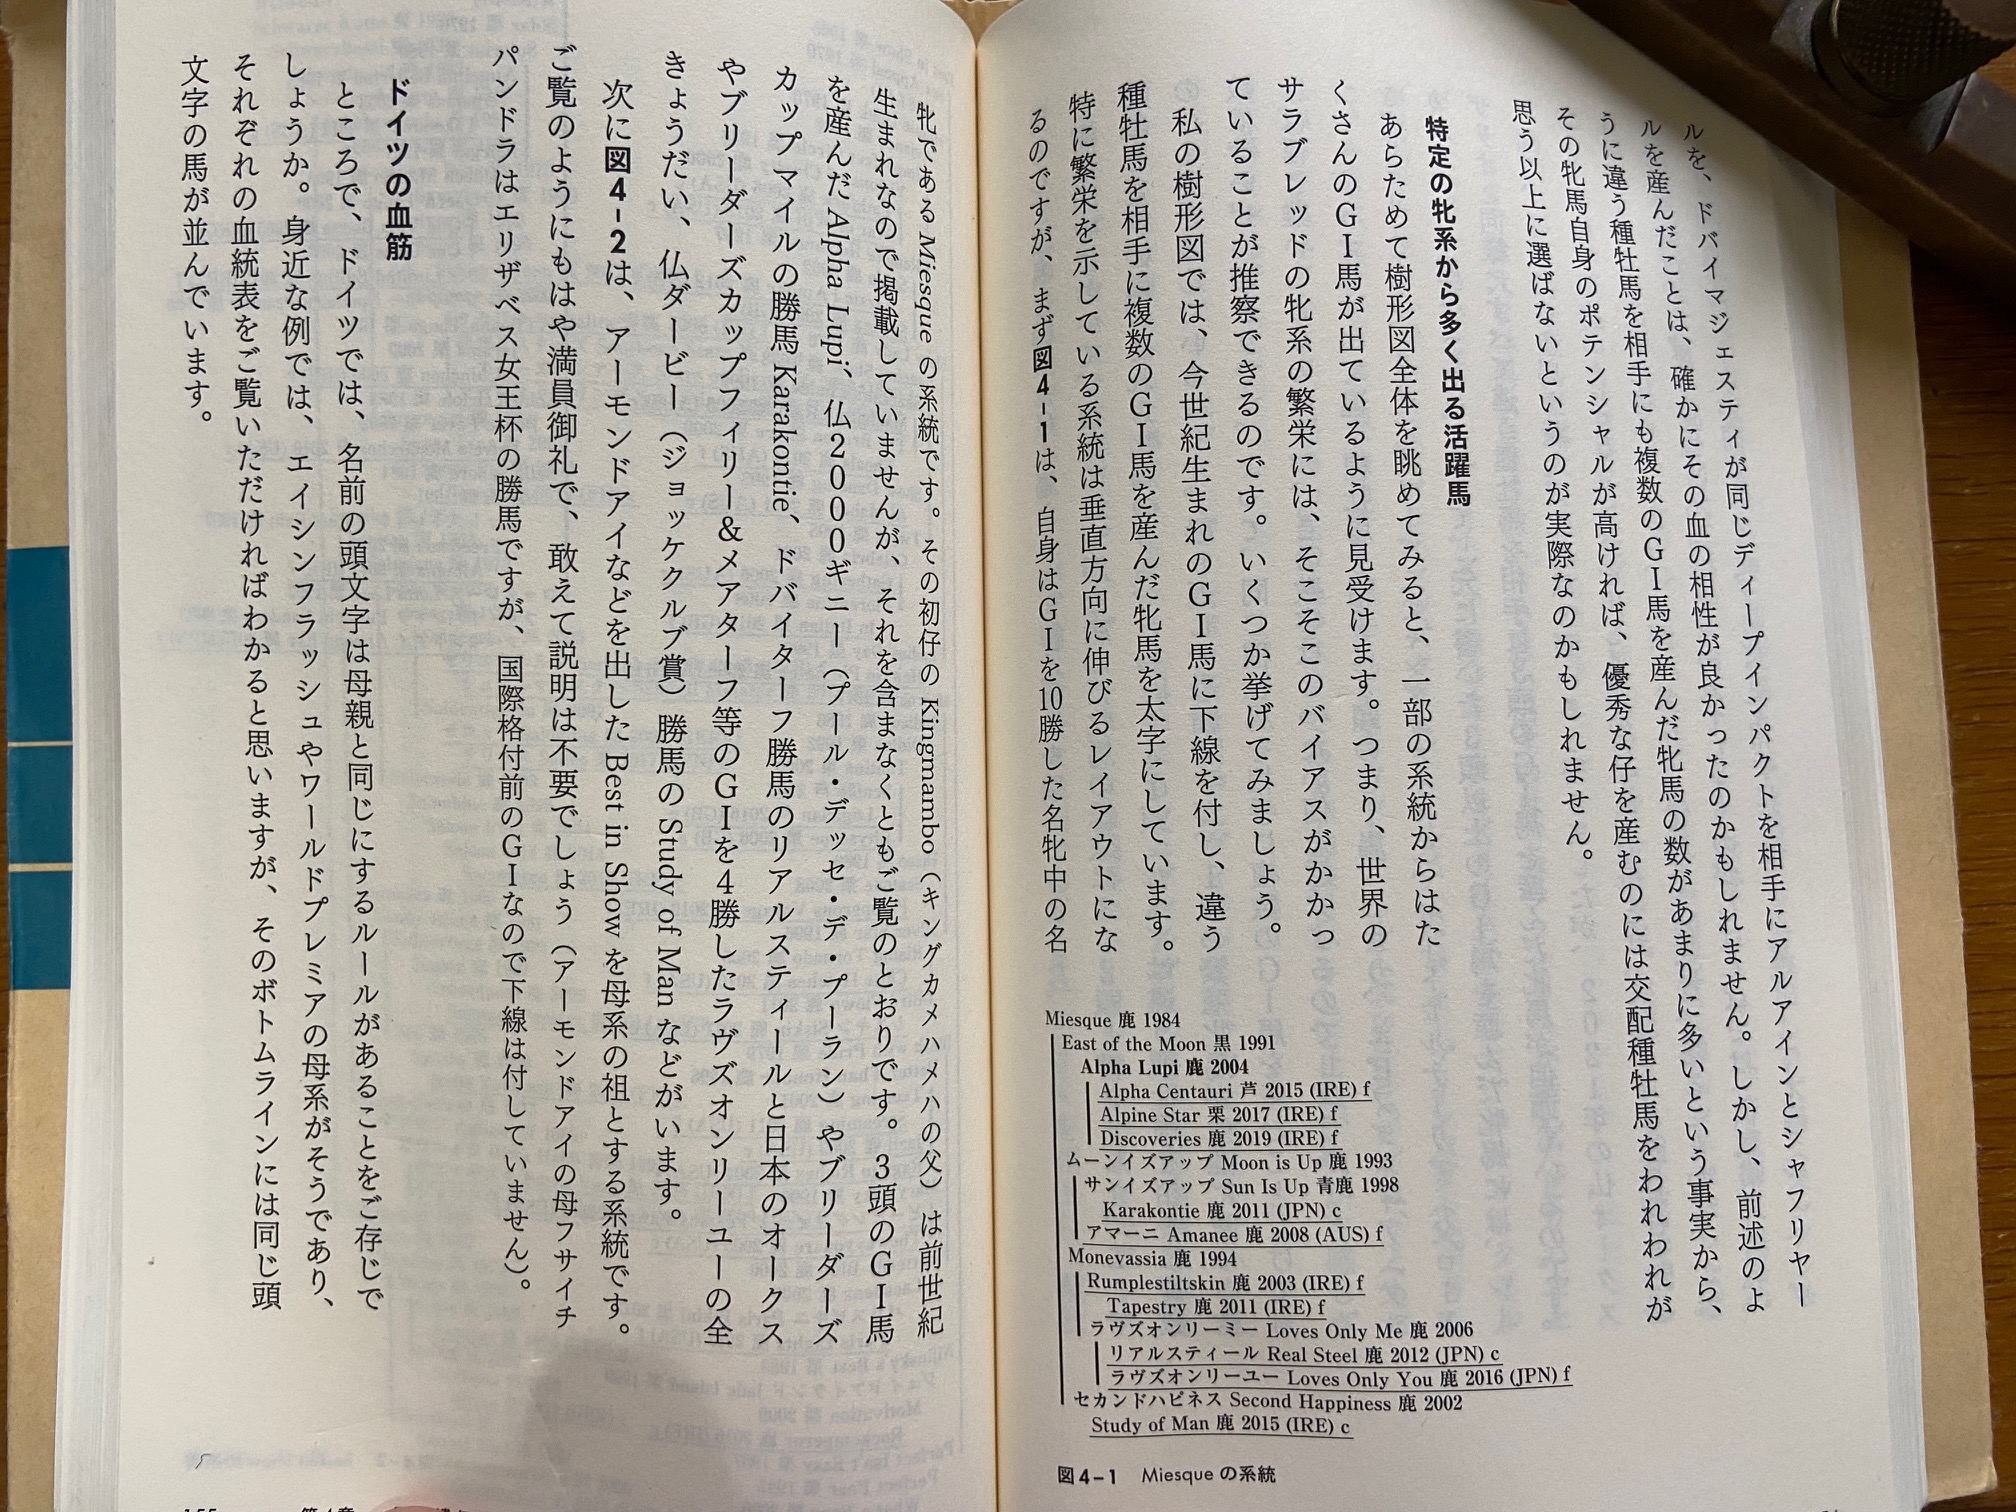 ルを、ドバイマジェスティが同じディープインパクトを相手にアルアインとシャフリヤー
ルを産んだことは、確かにその血の相性が良かったのかもしれません。しかし、前述のよ
うに違う種牡馬を相手にも複数のGⅠ馬を産んだ牝馬の数があまりに多いという事実から、
その牝馬自身のポテンシャルが高ければ、優秀な仔を産むのには交配種牡馬をわれわれが
思う以上に選ばないというのが実際なのかもしれません。
特定の牝系から多く出る活躍馬
あらためて樹形図全体を眺めてみると、一部の系統からはた
くさんのGⅠ馬が出ているように見受けます。つまり、世界の
サラブレッドの牝系の繁栄には、そこそこのバイアスがかかっ
ていることが推察できるのです。いくつか挙げてみましょう。
私の樹形図では、今世紀生まれのGⅠ馬に下線を付し、違う
種牡馬を相手に複数のGⅠ馬を産んだ牝馬を太字にしています。
特に繁栄を示している系統は垂直方向に伸びるレイアウトにな
るのですが、まず図4-1は、自身はGⅠを10勝した名牝中の名
Miesque 鹿 1984
East of the Moon 黒 1991
Alpha Lupi 鹿 2004
Alpha Centauri 芦 2015 (IRE) f
Alpine Star 栗 2017 (IRE) f
Discoveries 鹿 2019 (IRE) f
ムーンイズアップ Moon is Up 鹿 1993
サンイズアップ Sun Is Up 青鹿 1998
Karakontie 鹿 2011 (JPN) c
アマーニ Amanee 鹿 2008 (AUS) f
Monevassia 鹿 1994
Rumplestiltskin 鹿 2003 (IRE) f
Tapestry 鹿 2011 (IRE) f
ラヴズオンリーミー Loves Only Me 鹿 2006
リアルスティール Real Steel 鹿 2012 (JPN) c
ラヴズオンリーユー Loves Only You 鹿 2016 (JPN) f
セカンドハピネス Second Happiness 鹿 2002
Study of Man 鹿 2015 (IRE) c
図4-1 Miesqueの系統
牝であるMiesqueの系統です。その初仔のKingmambo（キングカメハメハの父）は前世紀
生まれなので掲載していませんが、それを含まなくともご覧のとおりです。3頭のGⅠ馬
を産んだAlpha Lupi、仏2000ギニー（プール・デッセ・デ・プーラン）やブリーダーズ
カップマイルの勝馬Karakontie、ドバイターフ勝馬のリアルスティールと日本のオークス
やブリーダーズカップフィリー＆メアターフ等のGⅠを4勝したラヴズオンリーユーの全
きょうだい、仏ダービー（ジョッケクルブ賞）勝馬のStudy of Manなどがいます。
次に図4-2は、アーモンドアイなどを出したBest in Showを母系の祖とする系統です。
ご覧のようにもはや満員御礼で、敢えて説明は不要でしょう（アーモンドアイの母フサイチ
パンドラはエリザベス女王杯の勝馬ですが、国際格付前のGⅠなので下線は付していません）。
ドイツの血筋
ところで、ドイツでは、名前の頭文字は母親と同じにするルールがあることをご存じで
しょうか。身近な例では、エイシンフラッシュやワールドプレミアの母系がそうであり、
それぞれの血統表をご覧いただければわかると思いますが、そのボトムラインには同じ頭
文字の馬が並んでいます。